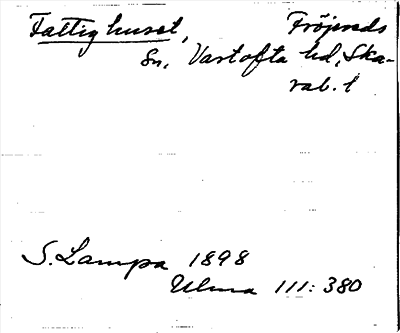 Fattighuset, Fröjereds
Sn, Vartofta hd, Ska-
rab. l
S. Lampa 1898
Ulma 111:380